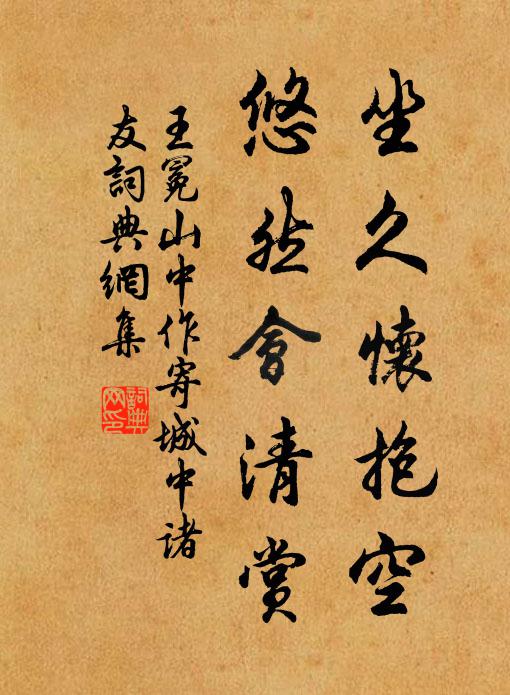 坐久懷抱空
悠然會清賞
王冕山中作寄城中諸
友詞典網集
詞典
网印